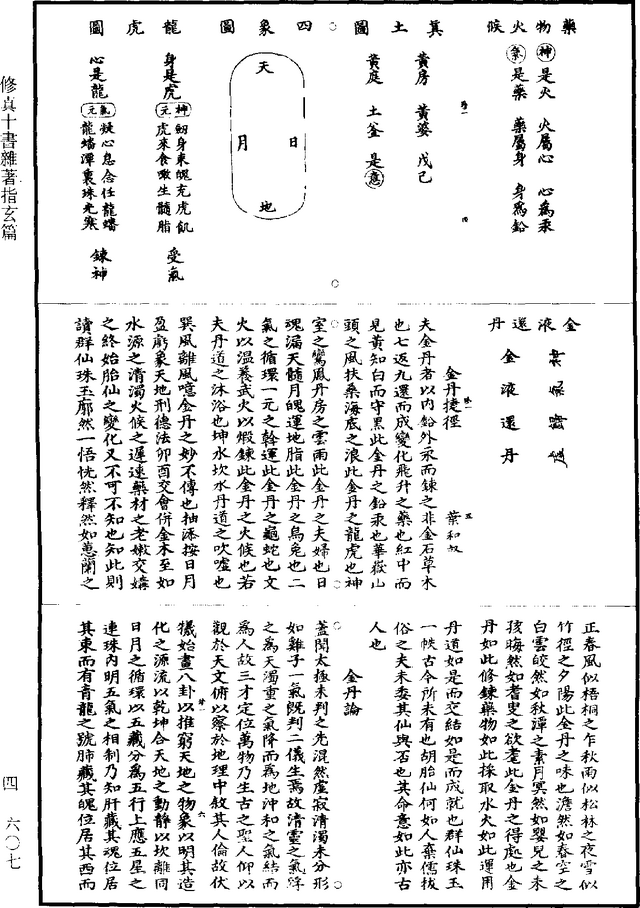 藥物火候
神是火 火屬心 心為汞
氣是藥 藥屬身 身為鉛
真土圖
黃房 黃婆 戊己
黃庭 土釜 是意
四象圖
天
日
月
地
龍虎圖
身是虎
神元
身束魄充虎飢
虎來食啖生髓脂
受氣
心是龍
氣元
凝心息念任龍蟠
龍蟠潭裏珠光寒
鍊神
四
金液還丹
金液還丹
金丹捷徑
葉和叔
五
夫金丹者以內鉛外汞而鍊之非金石草木
也七返九還而成變化飛升之藥也紅中而
見黃知白而守黑此金丹之鉛汞也華嶽山
頭之風扶桑海底之浪此金丹之龍虎也神
室之鸞鳳丹房之雲雨此金丹之夫婦也日
魂漏天髓月魄運地脂此金丹之烏兔也二
氣之循環一元之斡運此金丹之龜蛇也文
火以溫養武火以煅鍊此金丹之火候也若
夫丹道之沐浴也坤水坎水丹道之吹噓也
巽風離風噫金丹之妙不傳也抽添按日月
盈虧象天地刑德法卯酉交會併金木至如
水源之清濁火候之遲速藥材之老嫩交媾
之終始胎仙之變化又不可不知也知此則
讀群仙珠玉廓然一悟恍然釋然如蕙蘭之
正春風似梧桐之乍秋雨似松林之夜雪似
竹徑之夕陽此金丹之味也澹然如春空之
白雲皎然如秋潭之素月冥然如嬰兒之未
孩晦然如耆叟之欲耄此金丹之得處也金
丹如此修鍊藥物如此採取水火如此運用
丹道如是而交結如是而成就也群仙珠玉
一帙古今所未有也胡胎仙何如人棄儒拔
俗之夫未委其仙與否也其命意如此亦古
人也
金丹論
蓋聞太極未判之先混然虛寂清濁未分形
如雞子一氣既判二儀生焉故清靈之氣浮
之為天濁重之氣降而為地沖和之氣結而
為人故三才定位萬物乃生古之聖人仰以
觀於天文俯以察於地理中敘其人倫故伏
犧始畫八卦以推窮天地之物象以明其造
六
化之源流以乾坤合天地之動靜以坎離同
日月之循環以五藏分為五行上應五星之
連珠內明五氣之相制乃知肝藏其魂位居
其東而有青龍之號肺藏其魄位居其西而
修真十書雜著指玄篇
四 六〇七